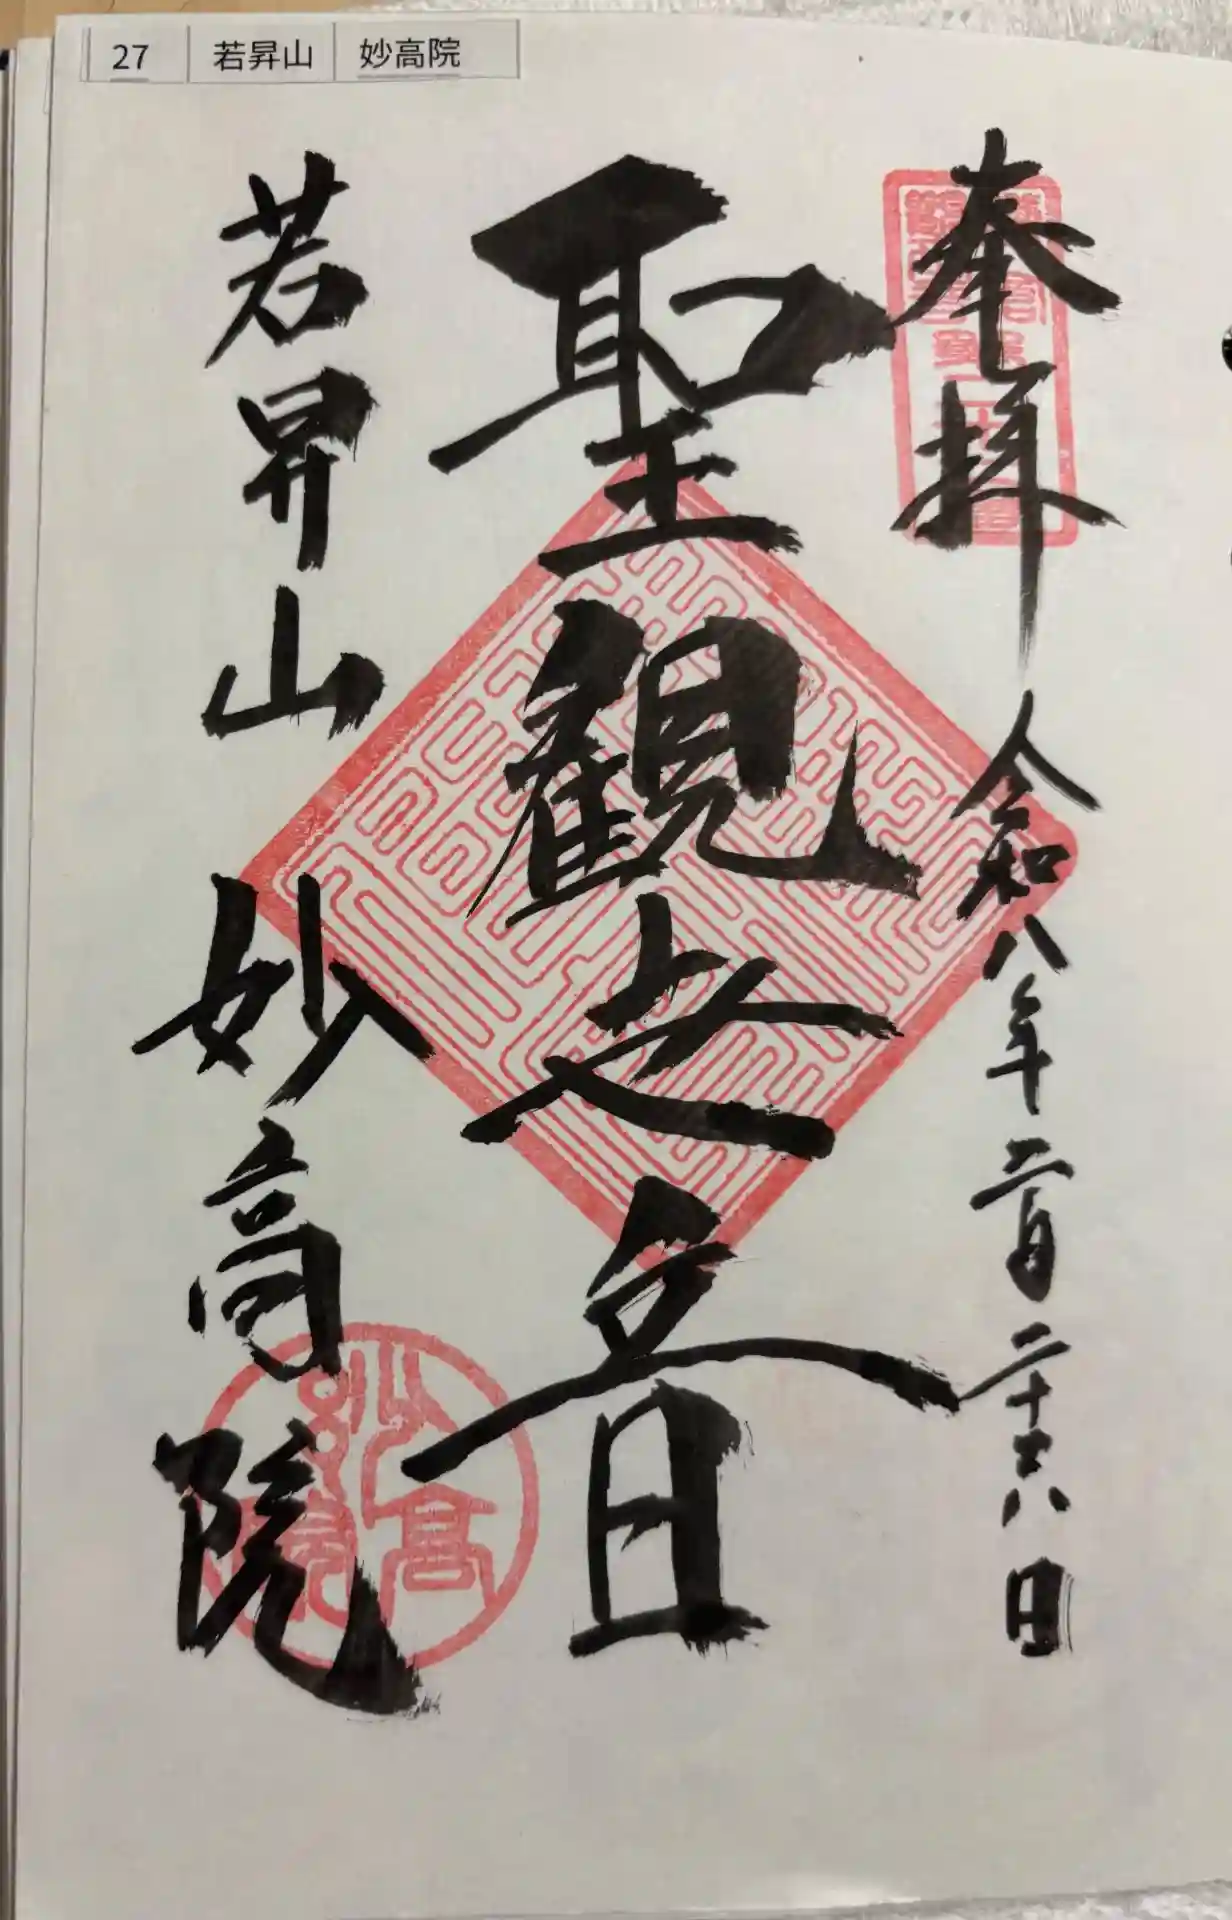 27 若昇山 妙高院
奉拝 令和八年二月二十六日
聖観世音
若昇山 妙高院
妙高院